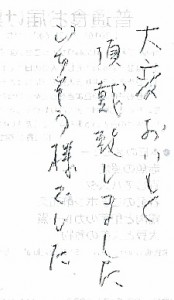 大変おいしく
頂戴致しました
ごちそう様でした